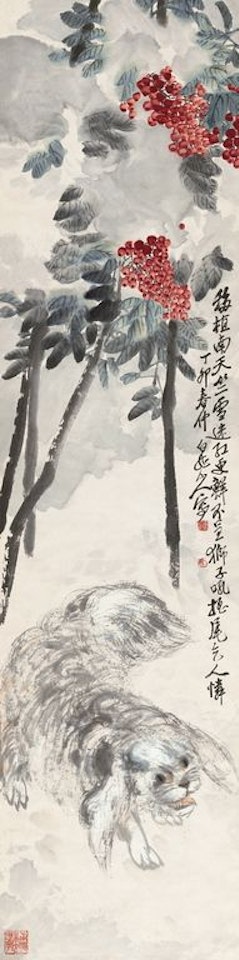 移植南天竺雪迷红更鲜不呈狮子吼摇尾乞人怜
丁卯春仲白龙山人写